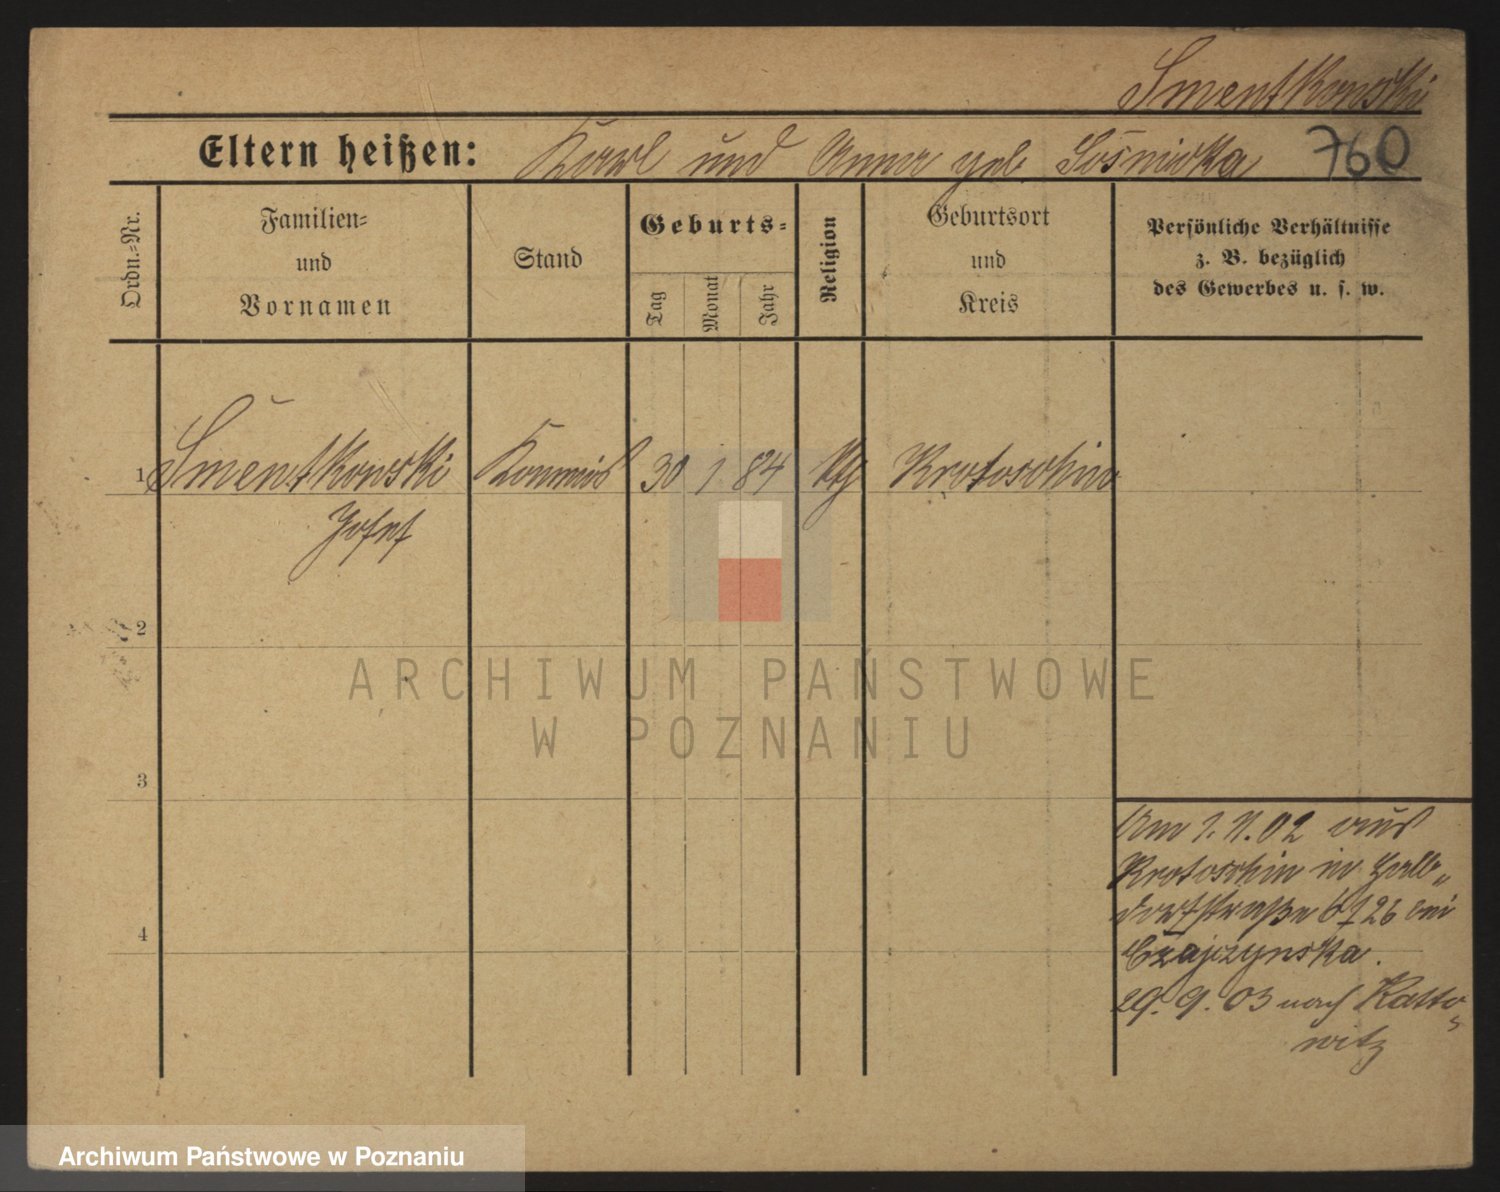 Smentkowski
Eltern heißen: Karl und Anna geb. Sośnicka 760
Ordn.-Nr.
Familien-
und
Vornamen
Stand
Geburts-
Tag
Monat
Jahr
Religion
Geburtsort
und
Kreis
Persönliche Verhältnisse
z. B. bezüglich
des Gewerbes u. s. w.
1 Smentkowski Kommis 30 1 84 Krotoschin
Josef
2
3
4
Am 1. 11. 02 aus
Krotoschin in Halb-
dorfstraße 26 bei
Czajczynska.
29. 9. 03 nach Katto-
witz
ARCHIWUM PAŃSTWOWE
W POZNANIU
Archiwum Państwowe w Poznaniu